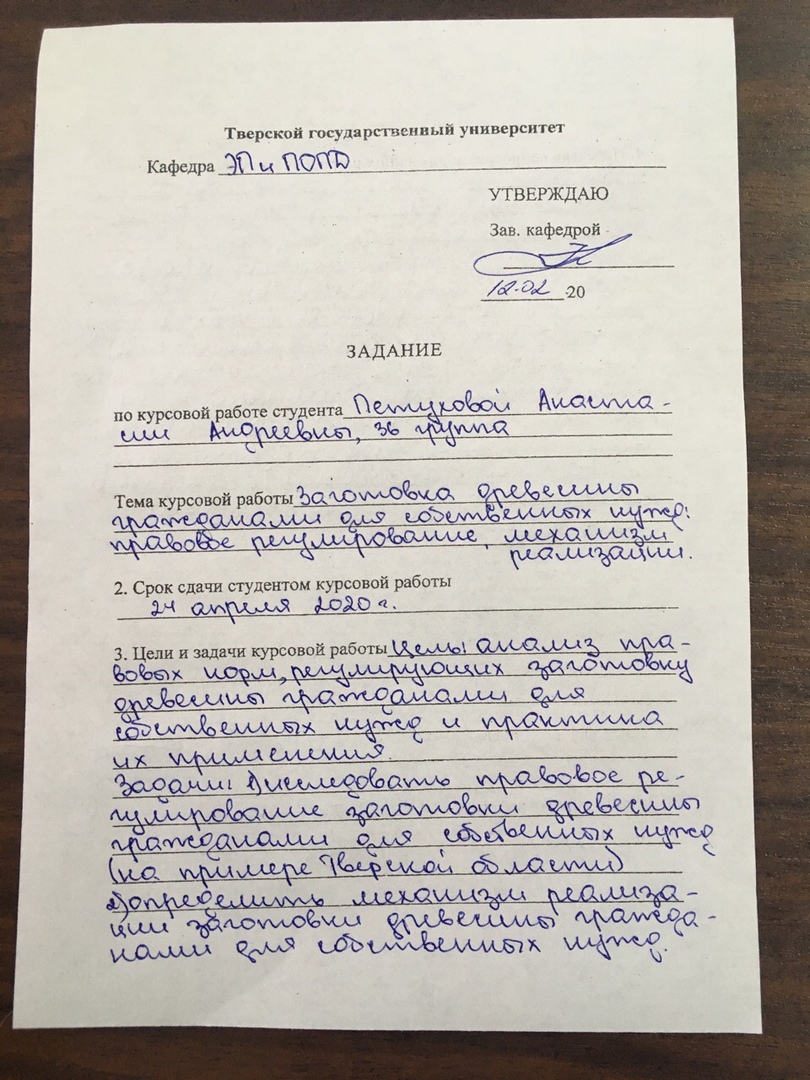 Тверской государственный университет
Кафедра ЭП и ПОПД
УТВЕРЖДАЮ
Зав. кафедрой
12.02 20
ЗАДАНИЕ
по курсовой работе студента Петуховой Анаста-
сии Андреевны, 36 группа
Тема курсовой работы Заготовка древесины
гражданами для собственных нужд:
правовое регулирование, механизм
реализации.
2. Срок сдачи студентом курсовой работы
24 апреля 2020 г.
3. Цели и задачи курсовой работы Цель: анализ пра-
вовых норм, регулирующих заготовку
древесины гражданами для
собственных нужд и практика
их применения.
Задачи: 1) исследовать правовое ре-
гулирование заготовки древесины
гражданами для собственных нужд
(на примере Тверской области)
2) определить механизм реализа-
ции заготовки древесины гражда-
нами для собственных нужд.